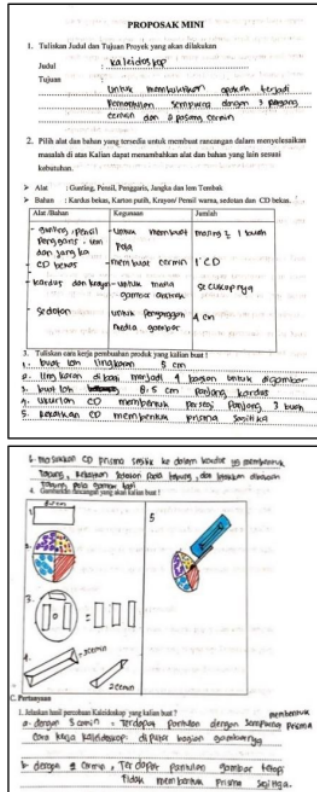 PROPOSAK MINI
1. Tuliskan Judul dan Tujuan Proyek yang akan dilakukan
Judul : kaleidoskop
Tujuan :
Untuk membuktikan apakah terjadi
Pemantulan sempurna dengan 3 pasang
cermin dan 2 pasang cermin
2. Pilih alat dan bahan yang tersedia untuk membuat rancangan dalam menyelesaikan
masalah di atas Kalian dapat menambahkan alat dan bahan yang lain sesuai
kebutuhan.
➢ Alat : Gunting, Pensil, Penggaris, Jangka dan lem Tembak
➢ Bahan : Kardus bekas, Karton putih, Krayon/ Pensil warna, sedotan dan CD bekas.
Alat /Bahan Kegunaan Jumlah
- gunting, Pensil - untuk membuat masing 2 1 buah
Penggaris, lem Pola
dan jangka
- CD bekas - membuat cermin 1 CD
- kardus dan krayon - untuk
gambar secukupnya
- Sedotan untuk 4 cm
media gambar
3. Tuliskan cara kerja pembuatan produk yang kalian buat !
1. buat lah lingkaran 5 cm
2. lingkaran di bagi menjadi 4 bagian untuk digambar
3. buat lah 8.5 cm panjang kardus
4. ukuran CD membentuk persegi panjang 3 buah
5. Rekatkan CD membentuk prisma segitiga
6. masukkan CD prisma ke dalam kardus yg membentuk
tabung, Rekatkan sedotan pada tabung, dan
4. Gambarlah rancangan yang akan kalian buat !
1.
2.
3.
4.
5
3 cermin
2 cermin
C. Pertanyaan
1. Jelaskan hasil percobaan Kaleidoskop yang kalian buat ?
a. dengan 3 cermin = Terdapat pantulan dengan sempurna membentuk prisma
cara kerja kaleidoskop: diputar bagian gambarnya
b. dengan 2 cermin, Terdapat pantulan gambar tetapi
tidak membentuk Prisma segitiga.